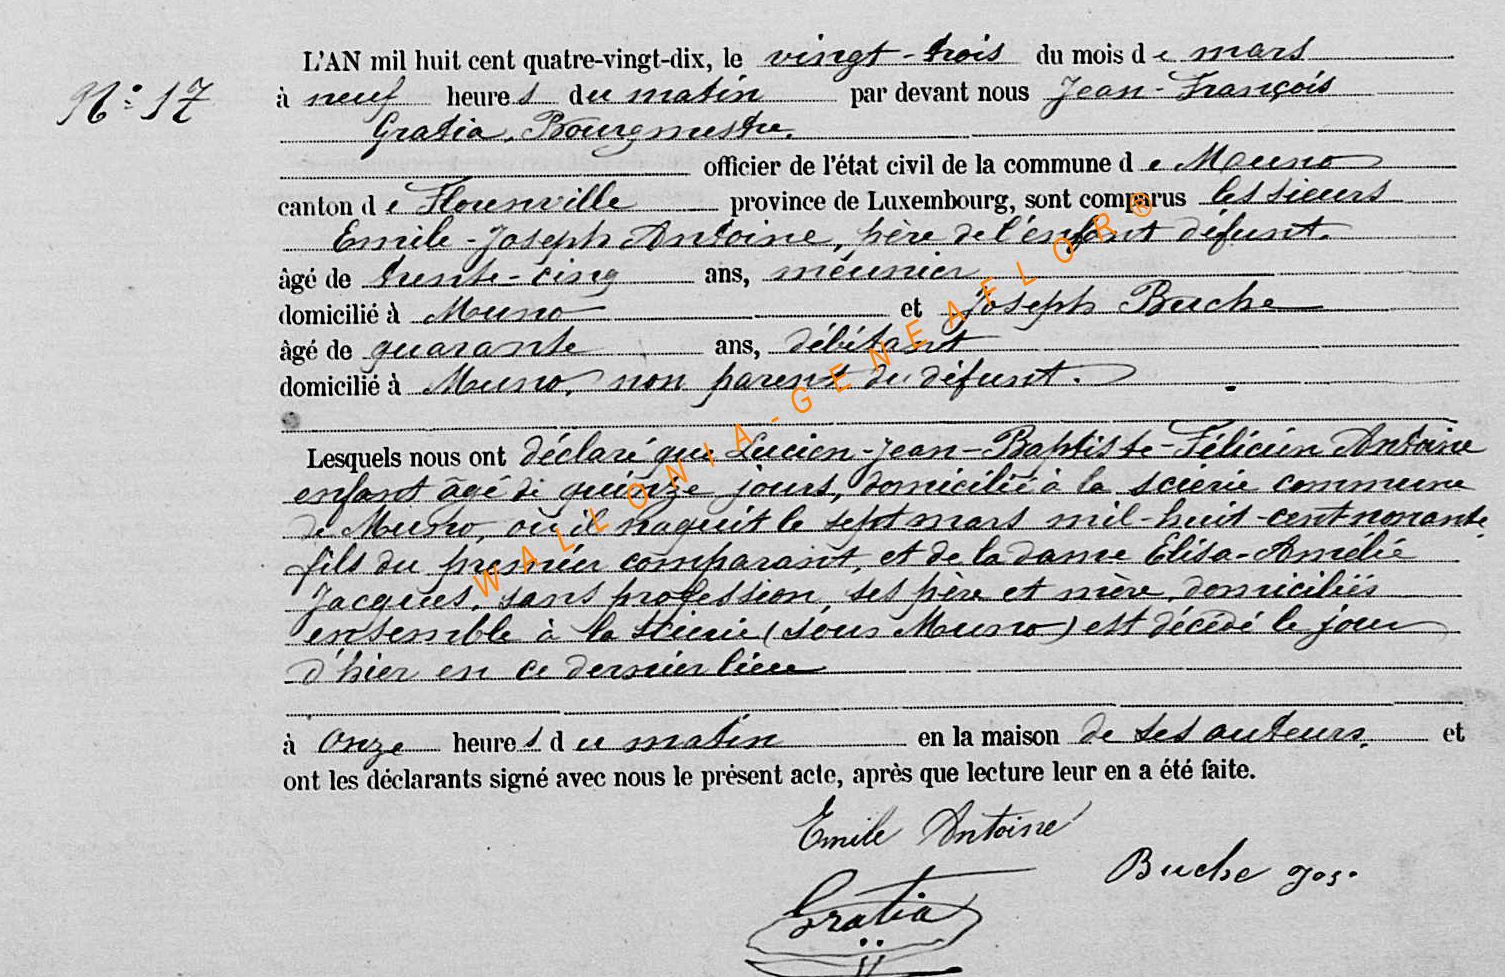 L'AN mil huit cent quatre-vingt-dix, le vingt-trois du mois de mars
N° 17
à neuf heures du matin par devant nous Jean-François
Gratia, Bourgmestre,
officier de l'état civil de la commune de Muno
canton de Florenville province de Luxembourg, sont comparus les sieurs
Emile-Joseph Antoine, père de l'enfant défunt.
âgé de trente-cinq ans, meunier
domicilié à Muno et Joseph Buche
âgé de quarante ans, débitant
domicilié à Muno, non parent du défunt.
Lesquels nous ont déclaré que Lucien-Jean-Baptiste-Félicien Antoine
enfant âgé de quinze jours, domicilié à la scierie commune
de Muno, où il naquit le sept mars mil-huit-cent nonante,
fils du premier comparant, et de la dame Elisa-Amélie
Jacques, sans profession, ses père et mère, domiciliés
ensemble à la scierie (sous Muno) est décédé le jour
d'hier en ce dernier lieu
à onze heures du matin en la maison de ses auteurs, et
ont les déclarants signé avec nous le présent acte, après que lecture leur en a été faite.
Emile Antoine
Buche Jos.
Gratia
WALLONIA-GENEAFLOR®